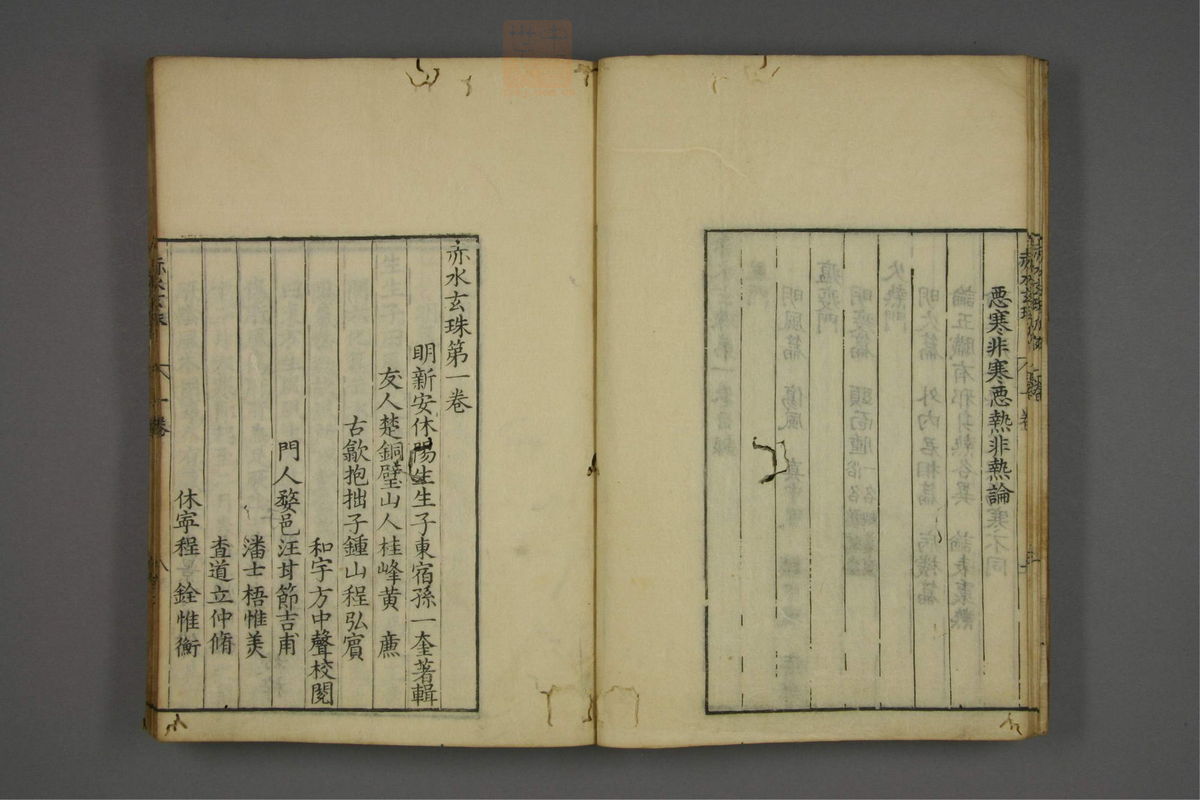 惡寒非寒惡熱非熱論
赤水玄珠第一卷
明新安休陽生生子東宿孫一奎著輯
友人楚銅壁山人桂峰黃 廌
古歙抱拙子鍾山程弘賓
和宇方中聲校閱
門人婺邑汪甘節吉甫
潘士梧惟美
查道立仲脩
休寧程 銓惟衡
赤水玄珠
一卷